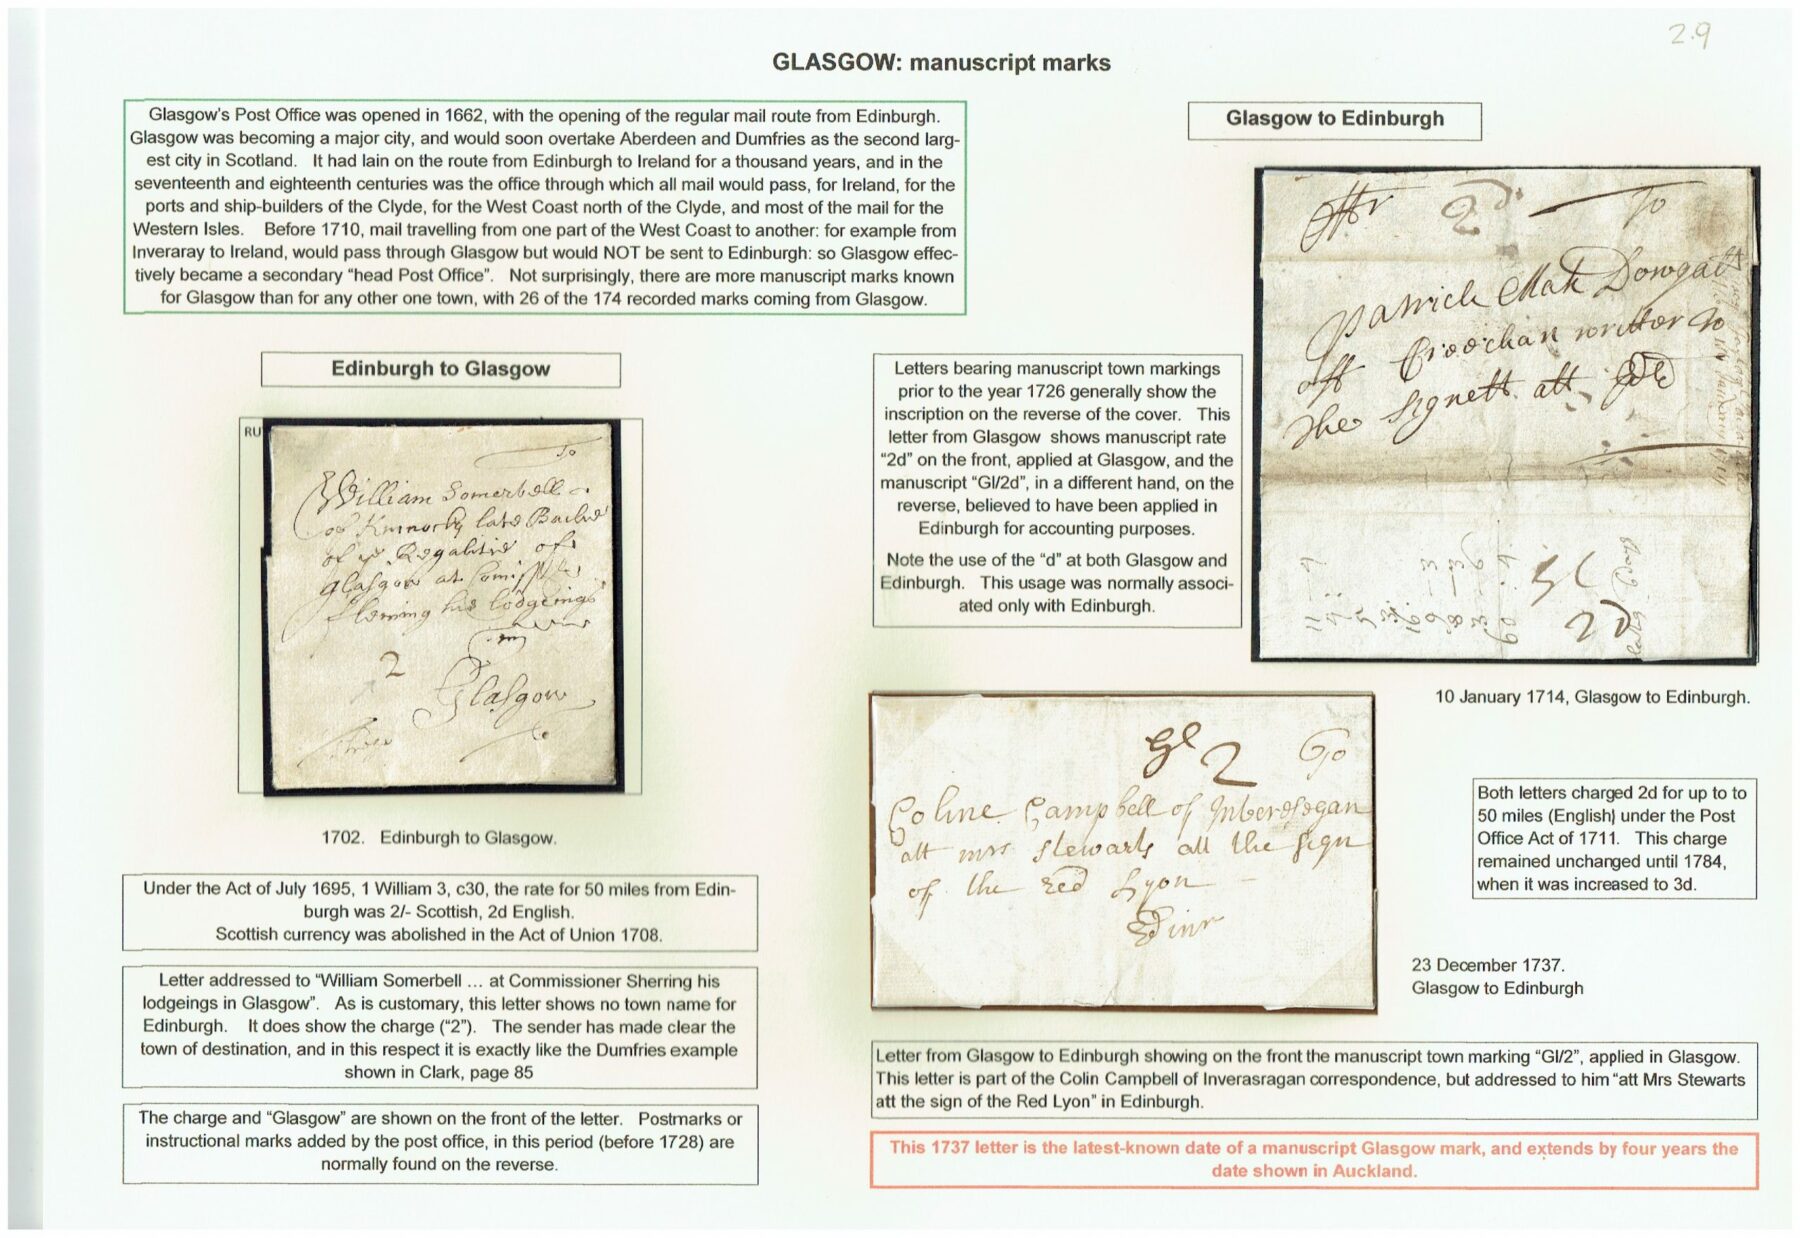 2.9
GLASGOW: manuscript marks
Glasgow's Post Office was opened in 1662, with the opening of the regular mail route from Edinburgh.
Glasgow was becoming a major city, and would soon overtake Aberdeen and Dumfries as the second larg-
est city in Scotland. It had lain on the route from Edinburgh to Ireland for a thousand years, and in the
seventeenth and eighteenth centuries was the office through which all mail would pass, for Ireland, for the
ports and ship-builders of the Clyde, for the West Coast north of the Clyde, and most of the mail for the
Western Isles. Before 1710, mail travelling from one part of the West Coast to another: for example from
Inveraray to Ireland, would pass through Glasgow but would NOT be sent to Edinburgh: so Glasgow effec-
tively became a secondary “head Post Office”. Not surprisingly, there are more manuscript marks known
for Glasgow than for any other one town, with 26 of the 174 recorded marks coming from Glasgow.
Edinburgh to Glasgow
RU
To
William Somerbell
late
of ye Regalitie of
Glasgow at
fleming his lodgeings
in
2
Glasgow
1702. Edinburgh to Glasgow.
Under the Act of July 1695, 1 William 3, c30, the rate for 50 miles from Edin-
burgh was 2/- Scottish, 2d English.
Scottish currency was abolished in the Act of Union 1708.
Letter addressed to “William Somerbell ... at Commissioner Sherring his
lodgeings in Glasgow”. As is customary, this letter shows no town name for
Edinburgh. It does show the charge (“2”). The sender has made clear the
town of destination, and in this respect it is exactly like the Dumfries example
shown in Clark, page 85
The charge and “Glasgow” are shown on the front of the letter. Postmarks or
instructional marks added by the post office, in this period (before 1728) are
normally found on the reverse.
Glasgow to Edinburgh
2d
To
Patrick Mak Dowgall
off Croochan writter to
the Signett att Edr
Gl
2d
10 January 1714, Glasgow to Edinburgh.
Letters bearing manuscript town markings
prior to the year 1726 generally show the
inscription on the reverse of the cover. This
letter from Glasgow shows manuscript rate
“2d” on the front, applied at Glasgow, and the
manuscript “Gl/2d”, in a different hand, on the
reverse, believed to have been applied in
Edinburgh for accounting purposes.
Note the use of the “d” at both Glasgow and
Edinburgh. This usage was normally associ-
ated only with Edinburgh.
Gl 2 To
Coline Campbell of Inberesegan
att mrs Stewarts att the Sign
of the Red Lyon
Edinr
Both letters charged 2d for up to to
50 miles (English) under the Post
Office Act of 1711. This charge
remained unchanged until 1784,
when it was increased to 3d.
23 December 1737.
Glasgow to Edinburgh
Letter from Glasgow to Edinburgh showing on the front the manuscript town marking “Gl/2”, applied in Glasgow.
This letter is part of the Colin Campbell of Inverasragan correspondence, but addressed to him “att Mrs Stewarts
att the sign of the Red Lyon” in Edinburgh.
This 1737 letter is the latest-known date of a manuscript Glasgow mark, and extends by four years the
date shown in Auckland.